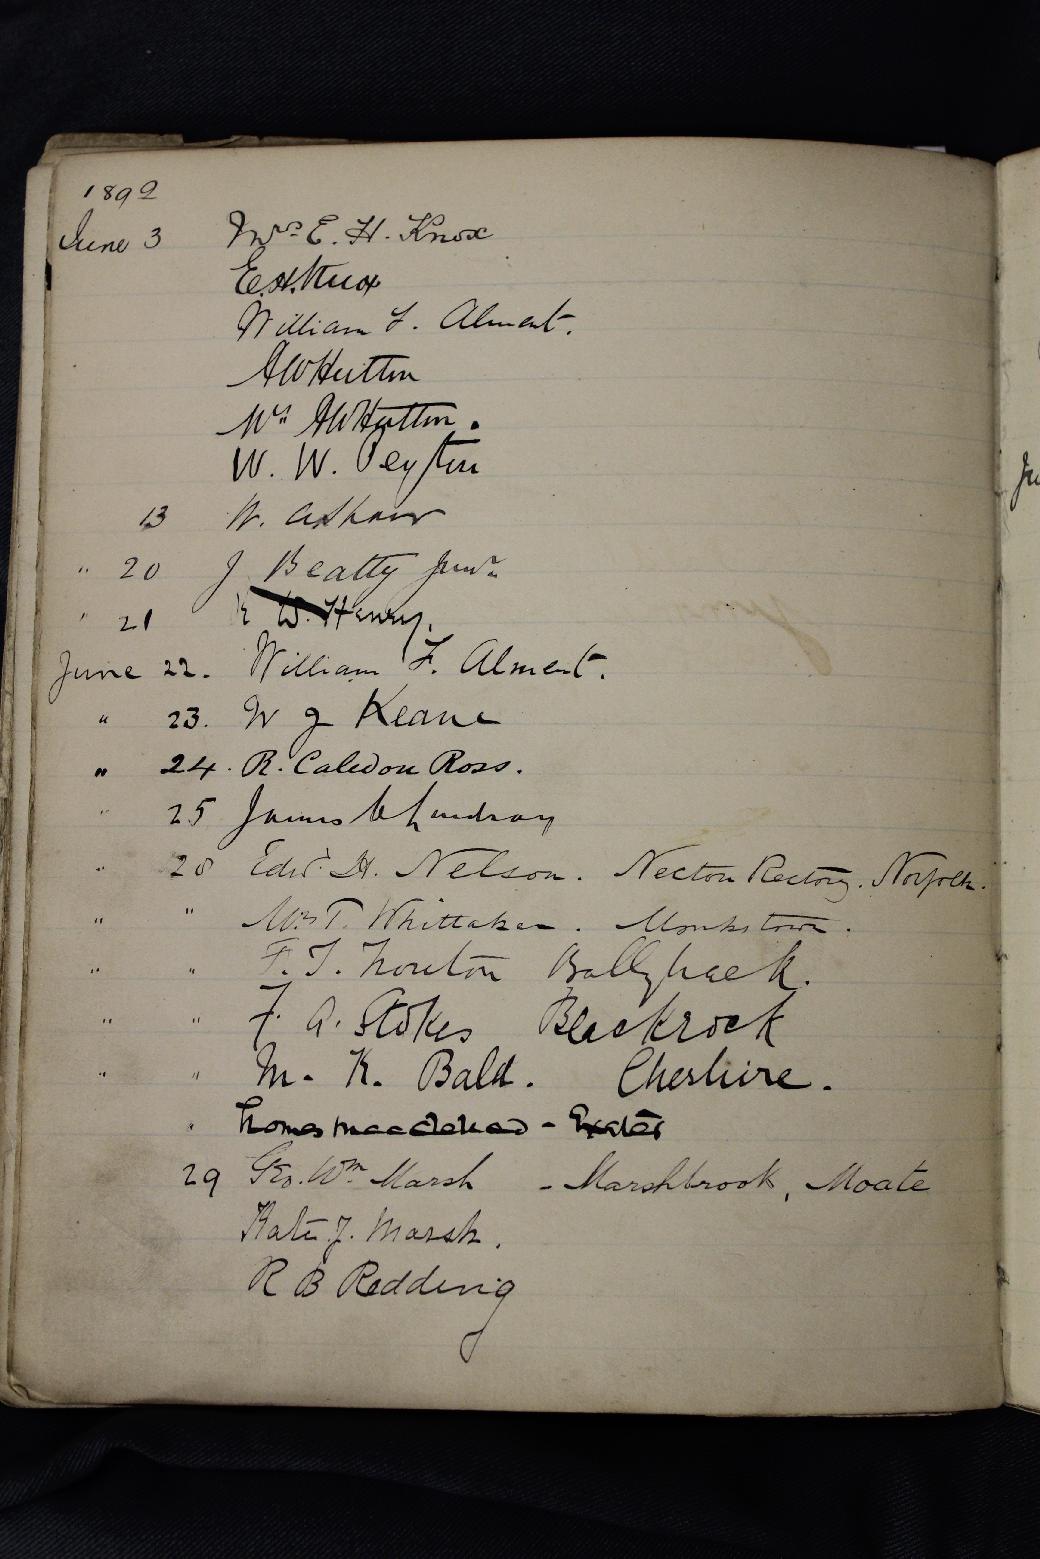 1892
June 3 Mrs E. H. Knox
E.H. Knox
William F. Alment.
AW Hutton
Mrs AW Hutton.
W. W. Peyton
13 W.
" 20 J Beatty Junr
" 21 W. Henry.
June 22. William F. Alment.
" 23. W J Keane
" 24. R. Caledon Ross.
" 25 James Lindsay
" 28 Edwd. H. Nelson. Necton Rectory. Norfolk.
" " Mrs T. Whittaker. Monkstown.
" " F. T. Ballyhack.
" " F. A. Stokes Blackrock
" " M. K. Bald. Cheshire.
" Thomas - Exeter
29 Geo. Wm Marsh - Marshbrook, Moate
Kate J. Marsh.
R B Redding
Ju